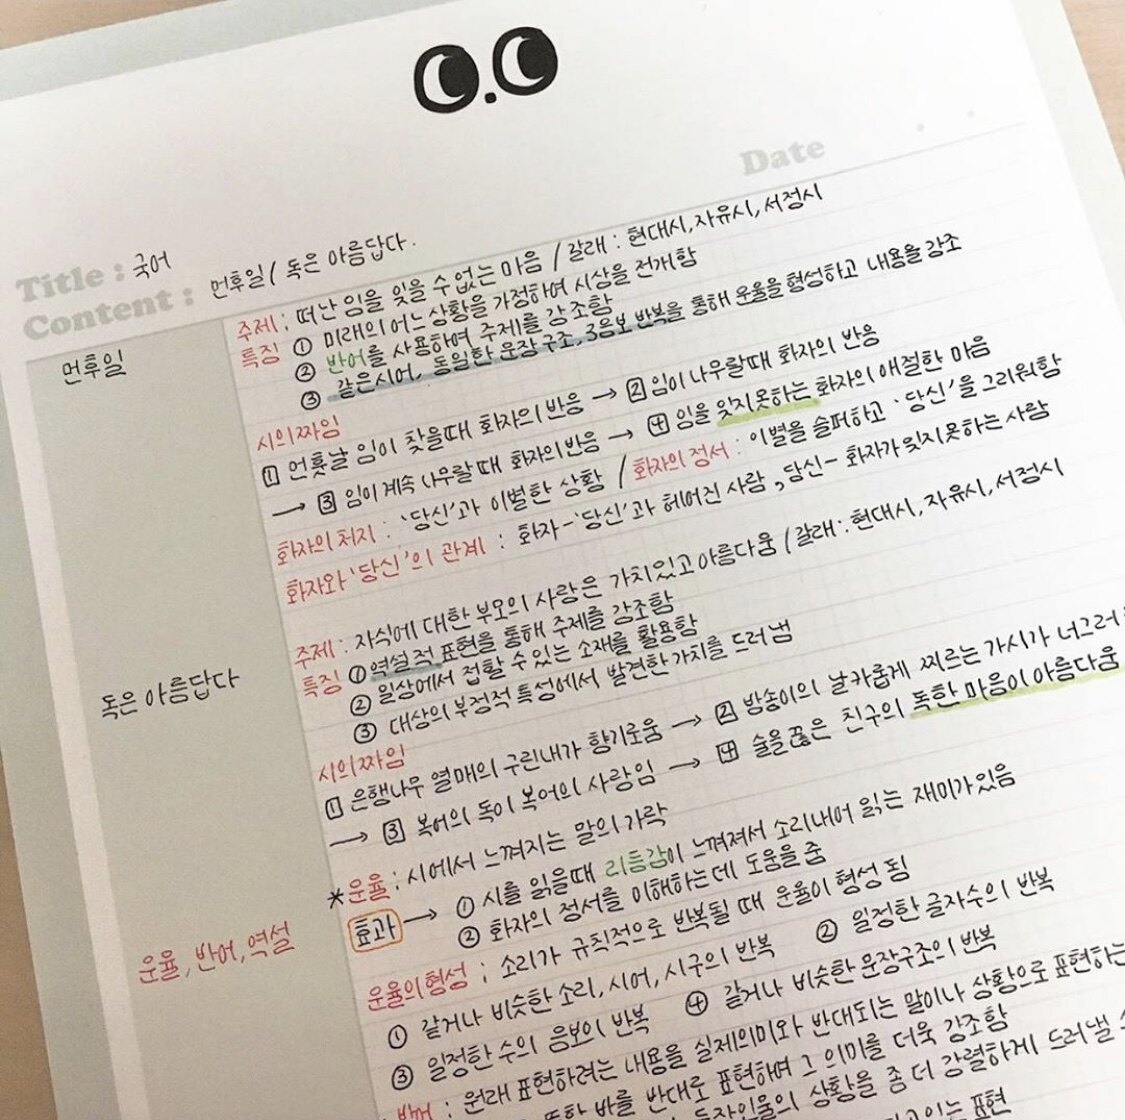 Date
Title : 국어
Content : 먼후일 / 독은 아름답다.
먼후일
주제 : 떠난 임을 잊을 수 없는 마음 / 갈래 : 현대시, 자유시, 서정시
특징 ① 미래의 어느 상황을 가정하여 시상을 전개함
② 반어를 사용하여 주제를 강조함
③ 같은시어, 동일한 문장구조, 3음보 반복을 통해 운율을 형성하고 내용을 강조
시의 짜임
1 먼훗날 임이 찾을때 화자의 반응 → 2 임이 나무랄때 화자의 반응
→ 3 임이 계속 나무랄 때 화자의 반응 → 4 임을 잊지못하는 화자의 애절한 마음
화자의 처지 : '당신'과 이별한 상황 / 화자의 정서 : 이별을 슬퍼하고 '당신'을 그리워함
화자와 '당신'의 관계 : 화자-'당신'과 헤어진 사람, 당신- 화자가 잊지못하는 사람
독은 아름답다
주제 : 자식에 대한 부모의 사랑은 가치있고 아름다움 / 갈래 : 현대시, 자유시, 서정시
특징 ① 역설적 표현을 통해 주제를 강조함
② 일상에서 접할 수 있는 소재를 활용함
③ 대상의 부정적 특성에서 발견한 가치를 드러냄
시의 짜임
1 은행나무 열매의 구린내가 향기로움 → 2 밤송이의 날카롭게 찌르는 가시가 너그러
→ 3 복어의 독이 복어의 사랑임 → 4 술을 끊은 친구의 독한 마음이 아름다움
운율, 반어, 역설
*운율 : 시에서 느껴지는 말의 가락
효과 → ① 시를 읽을때 리듬감이 느껴져서 소리내어 읽는 재미가 있음
② 화자의 정서를 이해하는데 도움을 줌
운율의 형성 ; 소리가 규칙적으로 반복될 때 운율이 형성 됨
① 같거나 비슷한 소리, 시어, 시구의 반복 ② 일정한 글자수의 반복
③ 일정한 수의 음보의 반복 ④ 같거나 비슷한 문장구조의 반복
반어 : 원래 표현하려는 내용을 실제의미와 반대되는 말이나 상황으로 표현하는
바를 반대로 표현하여 그 의미를 더욱 강조함
등장인물의 상황을 좀 더 강렬하게 드러낼
있는 표현